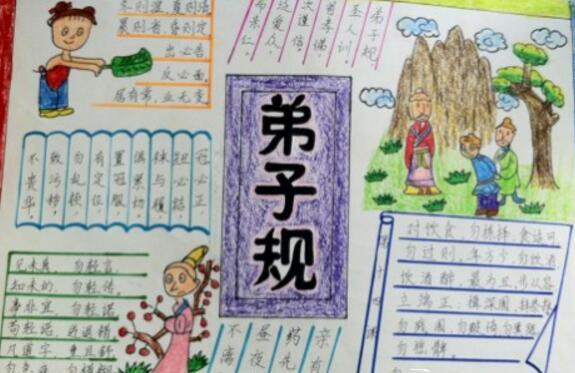 冬则温，夏则凊
晨则省，昏则定
出必告
反必面
居有常，业无变
弟子规
圣人训
首孝悌
次谨信
泛爱众
而亲仁
弟子规
冠必正
纽必结
袜与履
俱紧切
置冠服
有定位
勿乱顿
致污秽
不贵华
见未真，勿轻言
知未的，勿轻传
事非宜，勿轻诺
苟轻诺，进退错
凡道字，重且舒
对饮食，勿拣择，食适可
勿过则，年方少，勿饮酒
饮酒醉，最为丑，步从容
立端正，揖深圆，拜恭敬
勿践阈，勿跛倚，勿箕踞
勿摇髀
亲有
药先
昼夜
不离